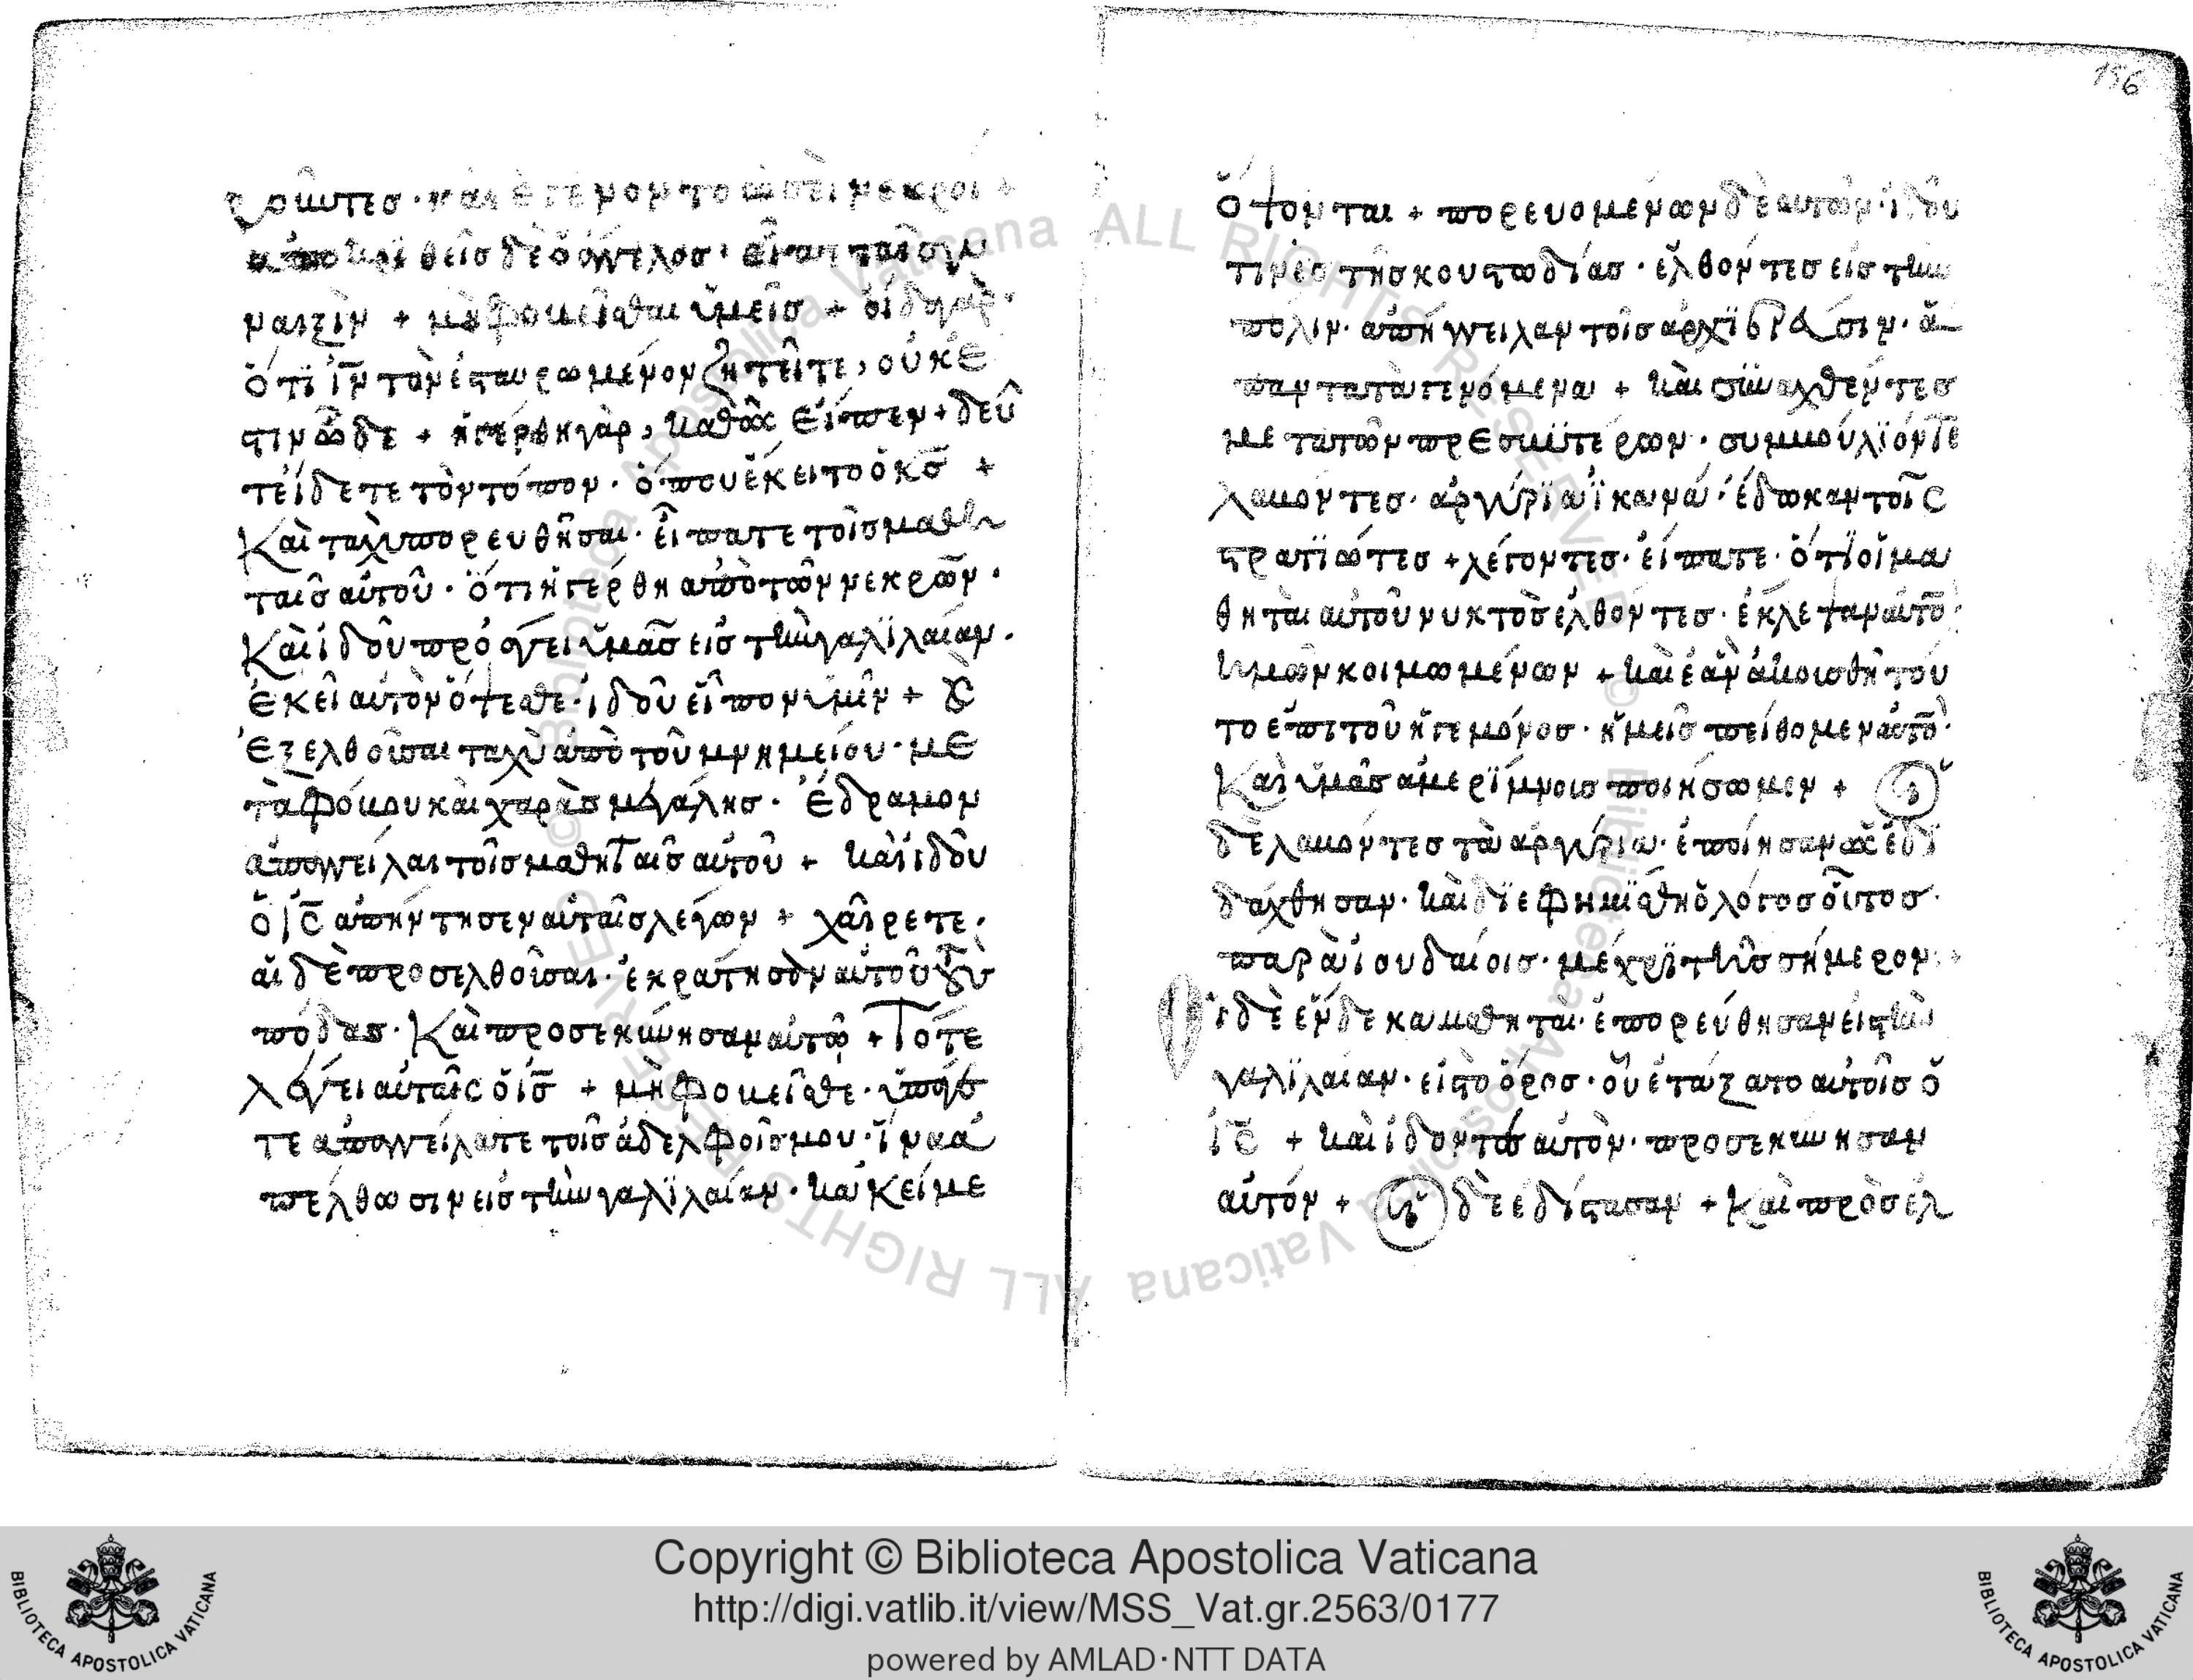 ροῦντες · καὶ ἐγένοντο ὡσεὶ νεκροὶ +
ἀποκριθεὶς δὲ ὁ ἄγγελος · εἶπεν ταῖς γυ
ναιξὶν + μὴ φοβεῖσθαι ὑμεῖς + οἶδα γὰρ ·
ὅτι ἰν τὸν ἐσταυρωμένον ζητεῖτε, οὐκ ἔ
στιν ὧδε + ἠγέρθη γὰρ, καθὼς εἶπεν + δεῦ
τε ίδετε τὸν τόπον · ὅπου ἔκειτο ὁ κσ +
Καὶ ταχὺ πορευθῆσαι · εἴπατε τοῖς μαθη
ταῖς αὐτοῦ · ὅτι ἠγέρθη ἀπὸ τῶν νεκρῶν ·
Καὶ ἰδοῦ προάγει ὑμᾶς εἰς τὴν γαλϊλαίαν ·
ἐκεῖ αὐτὸν ὄψεσθε · ἰδοῦ εἶπον ὑμῖν + ϗ
Ἐξελθοῦσαι ταχὺ ἀπὸ τοῦ μνημείου · με
τὰ φόβου καὶ χαρᾶς μεγάλης · Ἔδραμον
ἀπαγγεῖλαι τοῖς μαθηταῖς αὐτοῦ + καὶ ἰδοῦ
ὁ ις ἀπήντησεν αὐταῖς λέγων + χαίρετε ·
αἱ δὲ προσελθοῦσαι · ἐκράτησαν αὐτοῦ τοὺς
πόδας · Καὶ προσεκύνησαν αὐτῶ + Τότε
λέγει αὐταῖς ὁ ισ + μὴ φοβεῖσθε · ὑπάγε
τε ἀπαγγείλατε τοῖς ἀδελφοῖς μου · ἵνα ἀ
πέλθωσιν εἰς τὴν γαλϊλαίαν · κακεί με
156
ὄψονται + πορευομένων δὲ αυτῶν · ἰδοῦ
τινὲς τῆς κουστωδίας · ἐλθόντες εἰς τὴν
πόλιν · ἀπήγγειλαν τοῖς ἀρχϊερεῦσιν · ἅ
παντα τὰ γενόμενα + καὶ συναχθέντες
με τὰ τῶν πρεσβϋτέρων · συμβούλϊόν τε
λαβόντες · ἀργύρϊα ϊκανά · ἔδωκαν τοῖς
στρατϊώτες + λέγοντες · εἴπατε · ὅτϊ οἱ μα
θηταὶ αὐτοῦ νυκτὸς ἐλθόντες · ἔκλεψαν αὐτὸ ·
ἡμῶν κοιμωμένων + καὶ ἐὰν ἀκοισθῆ τοῦ
το ἐπὶ τοῦ ἡγεμόνος · ἡμεῖς πείθομεν αὐτὸ ·
Καὶ ὑμᾶς ἀμερϊμνοις ποιήσωμεν + οἱ
δὲ λαβόντες τὰ ἀργύρια · ἐποίησαν ὡς ἐδι
δάχθησαν · καὶ δϊεφημϊσθη ὁ λόγος οὗτος ·
παρὰ ἰουδαίοις · μέχρϊ τῆς σήμερον
οἱ δὲ ἕνδεκα μαθηταὶ · ἐπορεύθησαν εἰς τὴν
γαλϊλαίαν · εἰς τὸ ὄρος · οὗ ἐτάξατο αὐτοῖς ὁ
ις + καὶ ἰδόντες αὐτὸν · προσεκύνησαν
αὐτόν + οἱ δὲ ἐδίστασαν + Καὶ προσελ
Copyright © Biblioteca Apostolica Vaticana
http://digi.vatlib.it/view/MSS_Vat.gr.2563/0177
powered by AMLAD·NTT DATA
BIBLIOTECA APOSTOLICA VATICANA
BIBLIOTECA APOSTOLICA VATICANA